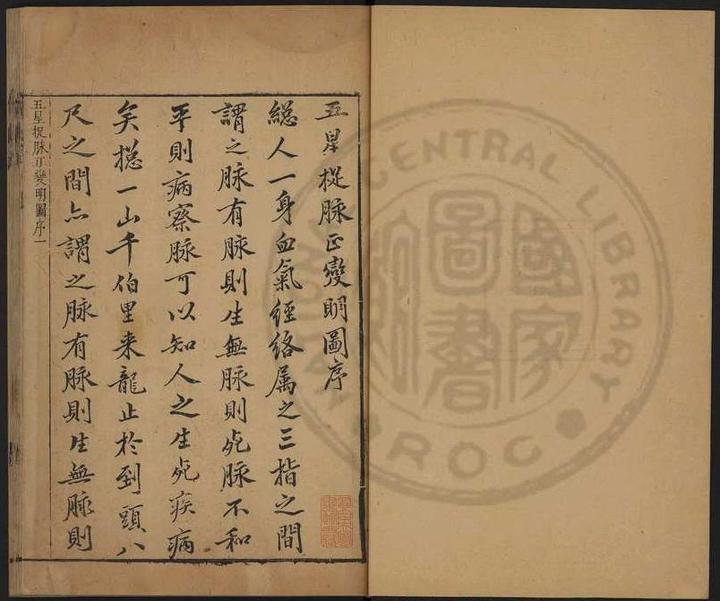 五星捉脉正變明圖序
緫人一身血氣經絡属之三指之間
謂之脉有脉則生無脉則死脉不和
平則病察脉可以知人之生死疾病
矣捴一山千伯里来龍止於到頭八
尺之間亦謂之脉有脉則生無脉則
五星捉脉正變明圖序一
國家圖書館
CENTRAL LIBRARY
R.O.C